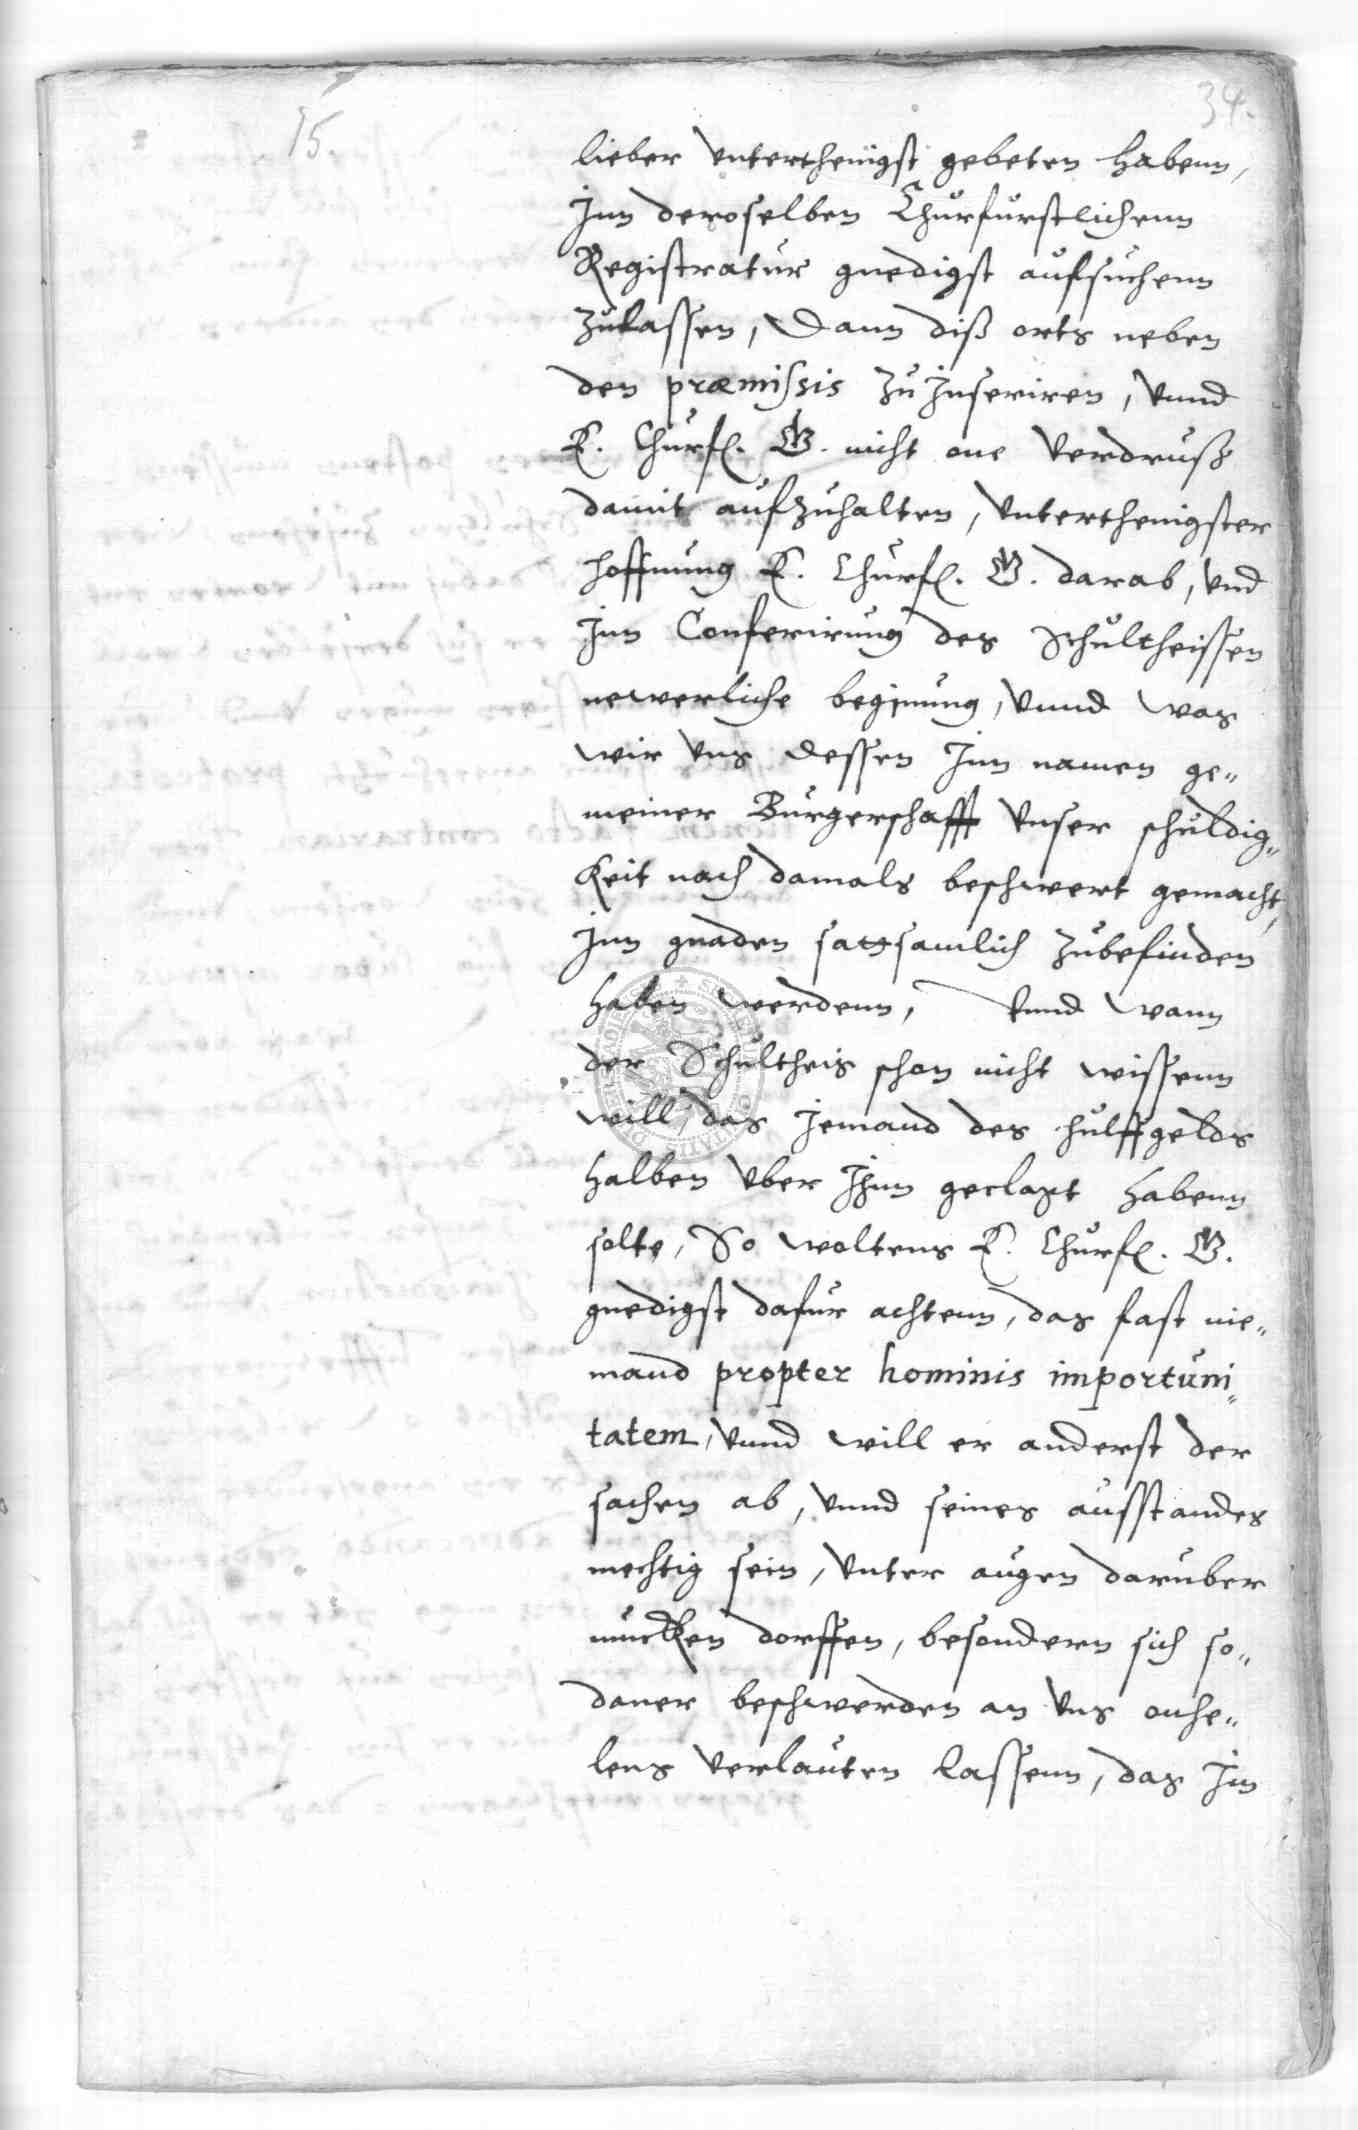 15.
34.
lieber vnterthenigst gebeten habenn,
Inn deroselben Churfurstlichenn
Registratur gnedigst aufsuchenn
zulassen, Dann diß orts neben
den præmissis zu Inseriren, vnnd
E. Churfl. G. nicht one verdruß
damit aufzuhalten, vnterthenigster
hoffnung E. Churfl. G. darab, vnd
Inn Conferirung des Schultheissen
newerliche beginnung, vnnd was
wir vns dessen Inn namen ge„
meiner Burgerschafft vnser schuldig„
keit nach damals beschwert gemacht,
Inn gnaden sattsamlich zubefinden
haben werdenn, Vnnd wann
der Schultheis schon nicht wissenn
will, das Jemand des hulffgelds
halben vber Ihnn geclagt habenn
solte, So woltens E. Churfl. G.
gnedigst dafur achtenn, das fast nie„
mand propter hominis importuni„
tatem, vnnd will er anderst der
sachen ab, vnnd seines ausstandes
mechtig sein, vnter augen daruber
mucken dorffen, besondern sich so„
daner beschwerden an vns onhe„
lens verlauten lassenn, das Im